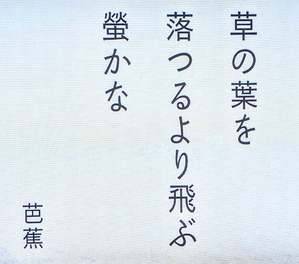 草の葉を
落つるより飛ぶ
螢かな
芭蕉